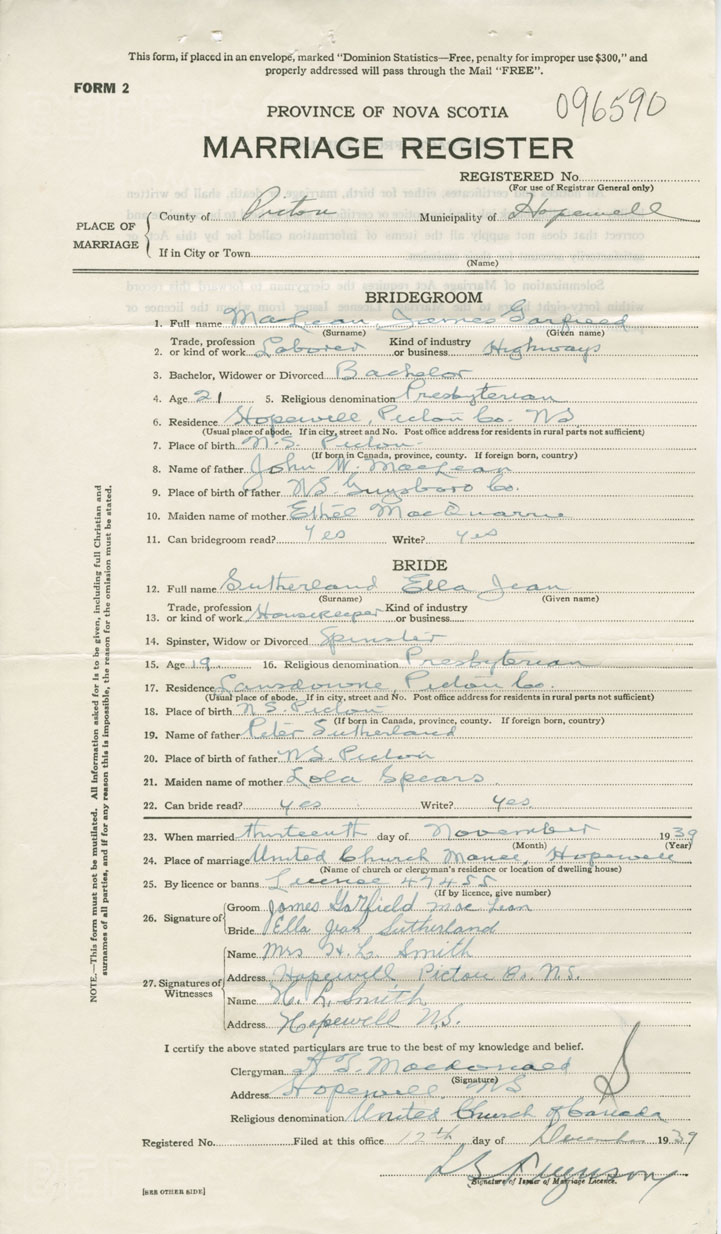 This form, if placed in an envelope, marked "Dominion Statistics—Free, penalty for improper use $300," and
properly addressed will pass through the Mail "FREE".
FORM 2
096590
PROVINCE OF NOVA SCOTIA
MARRIAGE REGISTER
REGISTERED No.
(For use of Registrar General only)
PLACE OF MARRIAGE
County of Pictou Municipality of Hopewell
If in City or Town
(Name)
BRIDEGROOM
1. Full name MacLean, James Garfield
(Surname) (Given name)
2. Trade, profession or kind of work Laborer Kind of industry or business Highways
3. Bachelor, Widower or Divorced Bachelor
4. Age 21 5. Religious denomination Presbyterian
6. Residence Hopewell, Pictou Co. NS
(Usual place of abode. If in city, street and No. Post office address for residents in rural parts not sufficient)
7. Place of birth N.S. Pictou
(If born in Canada, province, county. If foreign born, country)
8. Name of father John W. MacLean
9. Place of birth of father NS Guysboro Co.
10. Maiden name of mother Ethel MacQuarrie
11. Can bridegroom read? Yes Write? yes
BRIDE
12. Full name Sutherland Ella Jean
(Surname) (Given name)
13. Trade, profession or kind of work Housekeeper Kind of industry or business
14. Spinster, Widow or Divorced Spinster
15. Age 19 16. Religious denomination Presbyterian
17. Residence Lansdowne, Pictou Co.
(Usual place of abode. If in city, street and No. Post office address for residents in rural parts not sufficient)
18. Place of birth N.S. Pictou
(If born in Canada, province, county. If foreign born, country)
19. Name of father Peter Sutherland
20. Place of birth of father NS. Pictou
21. Maiden name of mother Lola Spears
22. Can bride read? yes Write? yes
23. When married thirteenth day of November 1939
(Month) (Year)
24. Place of marriage United Church Manse, Hopewell
(Name of church or clergyman's residence or location of dwelling house)
25. By licence or banns License 47455
(If by licence, give number)
26. Signature of
Groom James Garfield MacLean
Bride Ella Jean Sutherland
27. Signatures of Witnesses
Name Mrs H. L. Smith
Address Hopewell Pictou Co. N.S.
Name H. L. Smith
Address Hopewell N.S.
I certify the above stated particulars are true to the best of my knowledge and belief.
Clergyman Macdonald
(Signature)
Address Hopewell, NS
Religious denomination United Church of Canada
Registered No. Filed at this office 12th day of December 1939
Ferguson
Signature of Issuer of Marriage Licence.
[SEE OTHER SIDE]
NOTE.—This form must not be mutilated. All information asked for is to be given, including full Christian and
surnames of all parties, and if for any reason this is impossible, the reason for the omission must be stated.